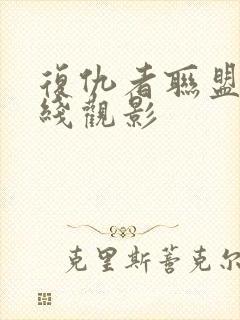 復仇者聯盟
綫觀影
克里斯蒈克尔